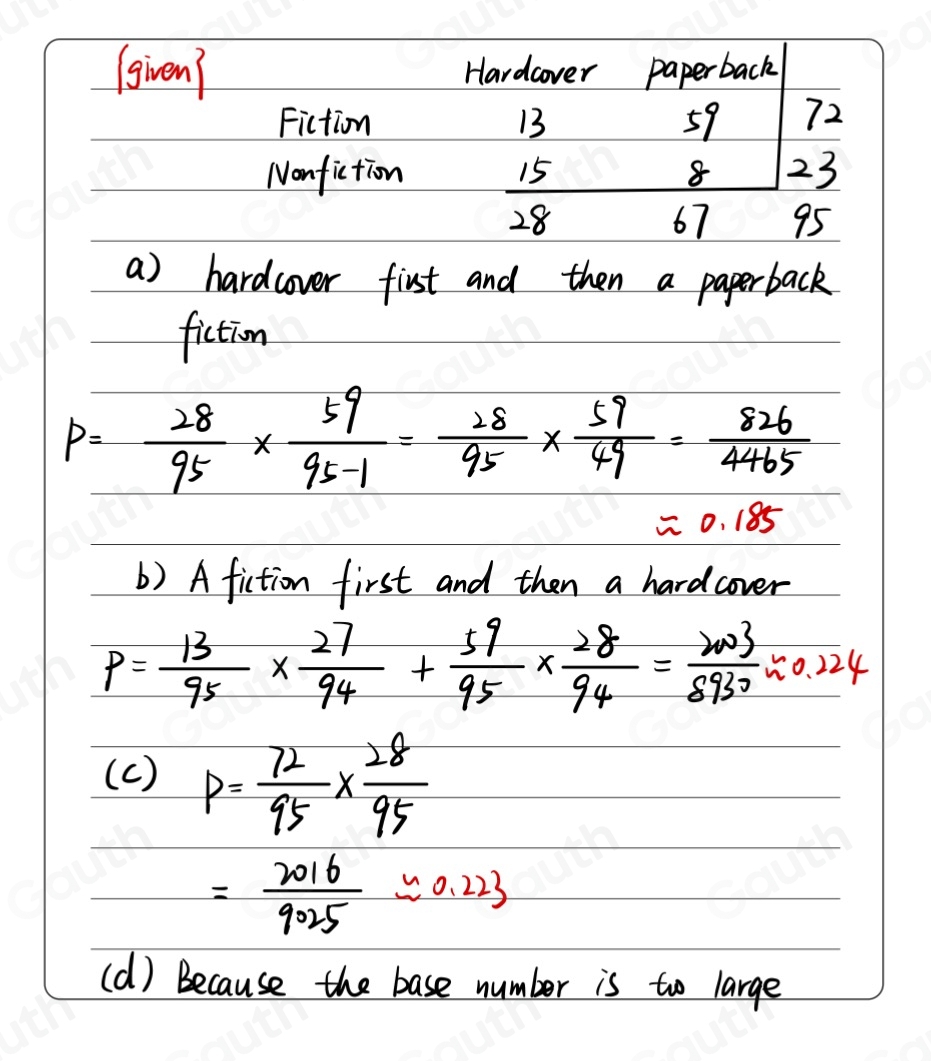 {given}
Hardcover paperback
Fiction 13 59 72
Nonfiction 15 8 23
28 67 95
a) hardcover first and then a paperback
fiction
P= 28/95 × 59/95-1 = 28/95 × 59/49 = 826/4465
≈ 0.185
b) A fiction first and then a hardcover
P= 13/95 × 27/94 + 59/95 × 28/94 = 2003/8930 ≈0.224
(c) P= 72/95 × 28/95
= 2016/9025 ≈ 0.223
(d) Because the base number is too large
Gauth